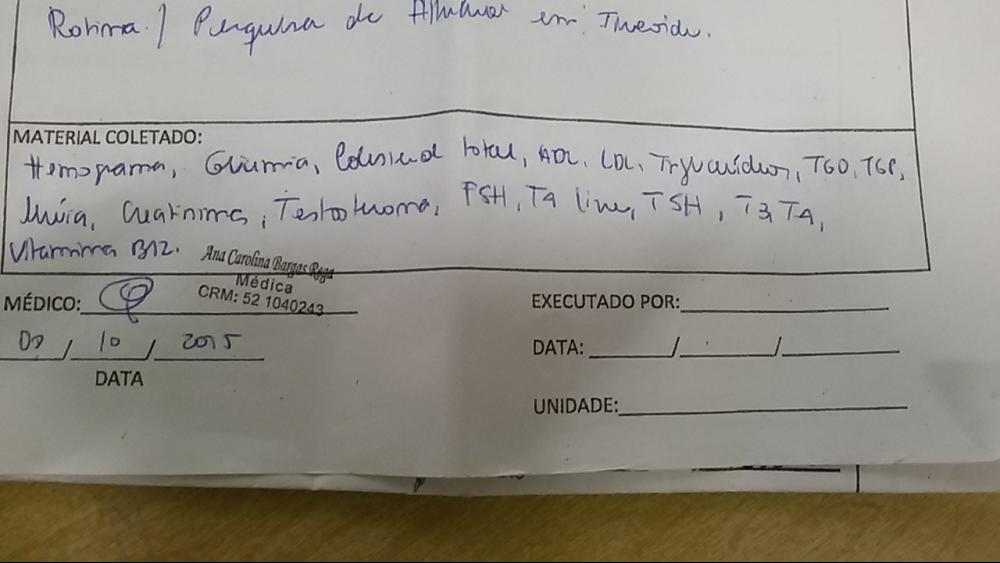 Rotina / Pesquisa de em Tireoide.
MATERIAL COLETADO:
Hemograma, Glicemia, Colesterol total, HDL, LDL, Tryglicerídeos, TGO, TGP,
Uréia, Creatinina, Testosterona, FSH, T4 livre, TSH, T3, T4,
Vitamina B12.
Ana Carolina Bargas Rega
Médica
CRM: 52 1040243
MÉDICO:
/ 10 / 2015
DATA
EXECUTADO POR:
DATA: / /
UNIDADE: